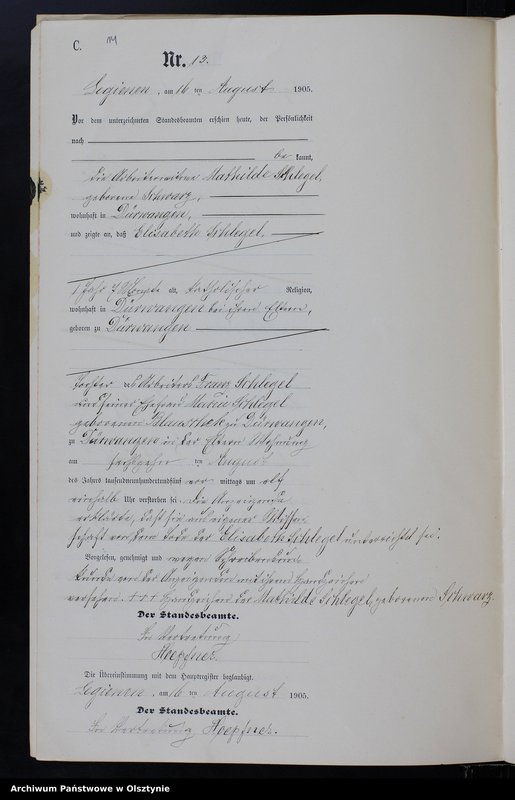 C.
Nr. 13.
Legienen, am 16 ten August 1905.
Vor dem unterzeichneten Standesbeamten erschien heute, der Persönlichkeit
nach
be kannt,
die Arbeiterwitwe Mathilde Schlegel,
geborene Schwarz,
wohnhaft in Dürwangen,
und zeigte an, daß Elisabeth Schlegel,
1 Jahr Monate alt, katholischer Religion,
wohnhaft in Dürwangen bei ihren Eltern,
geboren zu Dürwangen
Tochter des Arbeiters Franz Schlegel
und seiner Ehefrau Maria Schlegel
geborenen zu Dürwangen,
zu Dürwangen in der Eltern Wohnung
am sechszehn ten August
des Jahres tausendneunhundertundfünf vor mittags um elf
einhalb Uhr verstorben sei. Die Anzeigende
erklärte, daß sie aus eigener Wissen-
schaft von dem Tode der Elisabeth Schlegel unterrichtet sei.
Vorgelesen, genehmigt und wegen Schreibensun-
kunde von der Anzeigenden mit ihrem Handzeichen
versehen. +++ Handzeichen der Mathilde Schlegel, geborenen Schwarz.
Der Standesbeamte.
In Vertretung
Hoepfner.
Die Übereinstimmung mit dem Hauptregister beglaubigt.
Legienen, am 16 ten August 1905.
Der Standesbeamte.
In Vertretung Hoepfner.
Archiwum Państwowe w Olsztynie